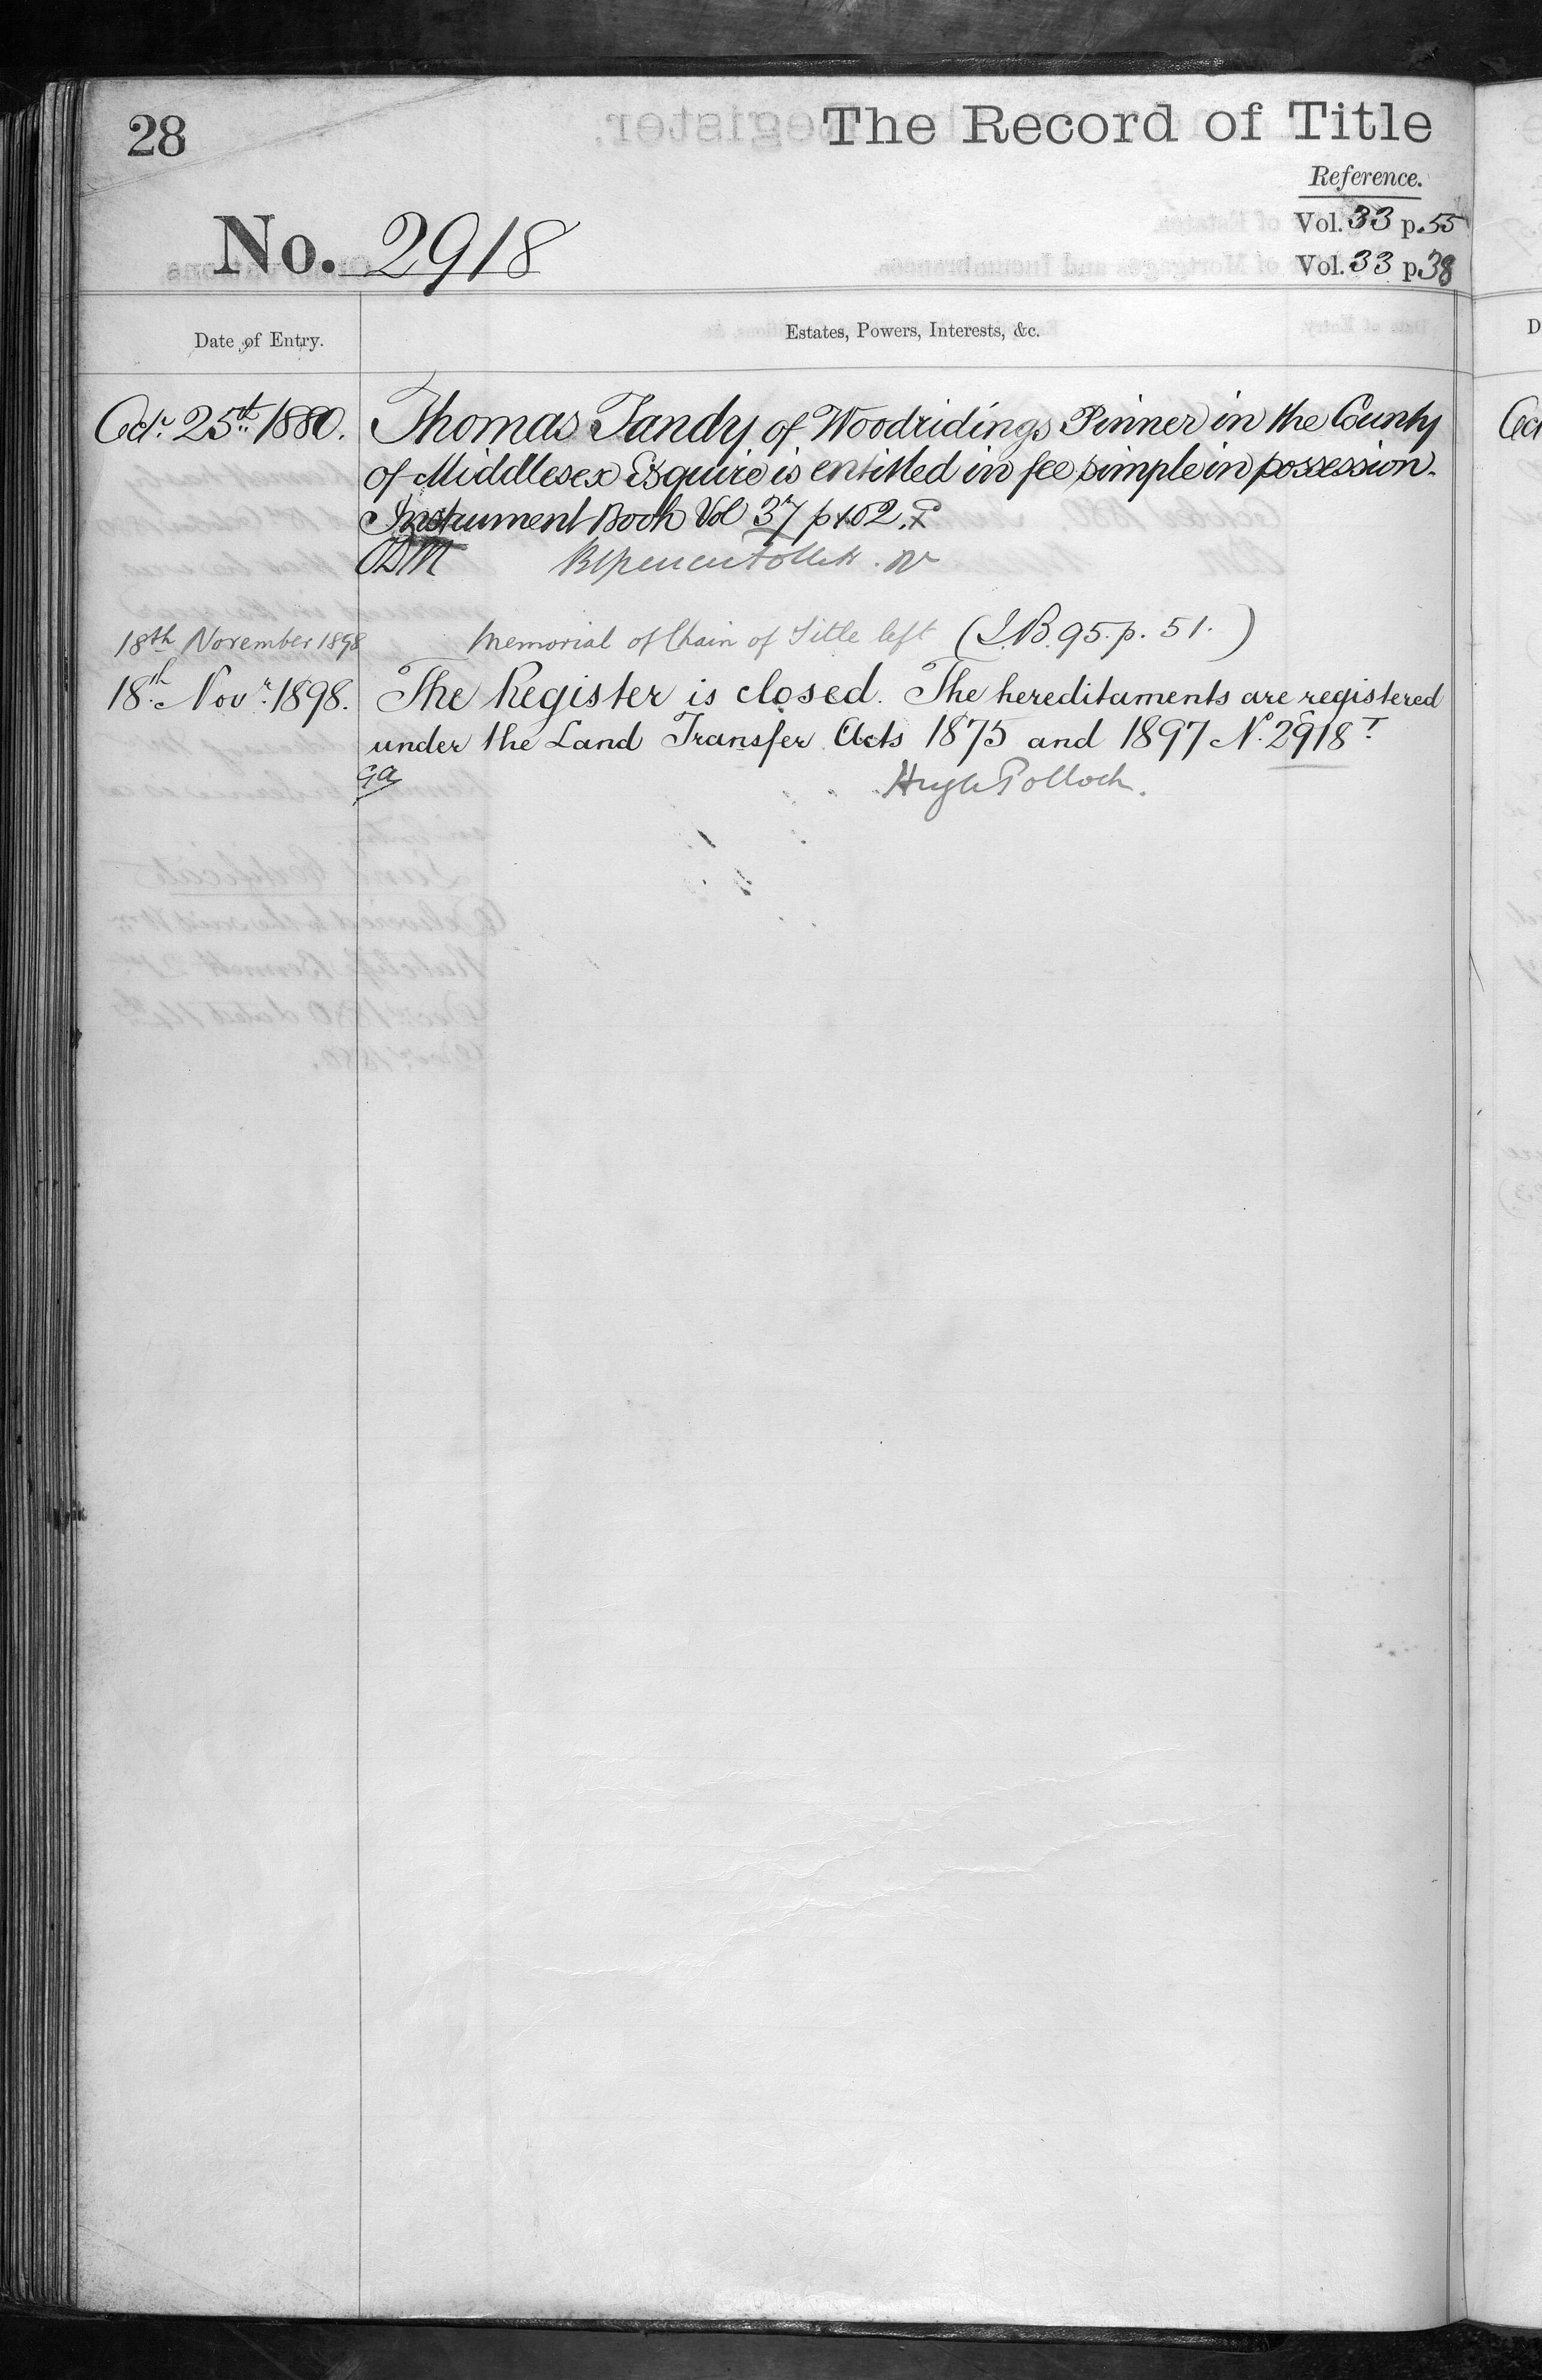 28
The Record of Title
Reference.
Vol. 33 p. 55
No. 2918
Vol. 33 p. 38
Date of Entry.
Estates, Powers, Interests, &c.
Octr. 25th. 1880.
Thomas Tandy of Woodridings Pinner in the County
of Middlesex Esquire is entitled in fee simple in possession.
Instrument Book Vol 37 p 102.
18th November 1898
Memorial of Chain of Title left (I.B. 95. p. 51.)
18th. Novr. 1898.
The Register is closed. The hereditaments are registered
under the Land Transfer Acts 1875 and 1897 No. 2918 T
Hugh Pollock.